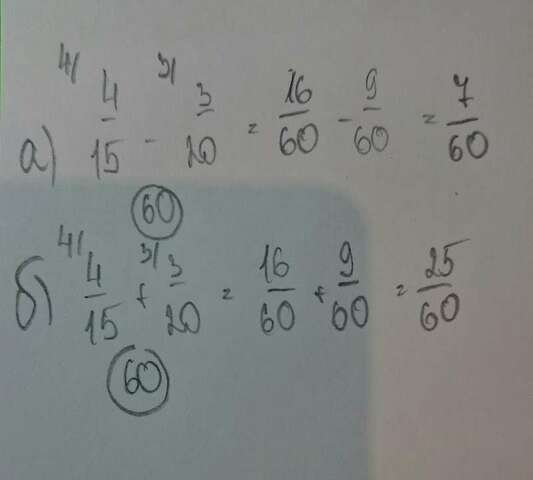 а) 4/ 4/15 - 3/ 3/20 = 16/60 - 9/60 = 7/60
60
б) 4/ 4/15 + 3/ 3/20 = 16/60 + 9/60 = 25/60
60